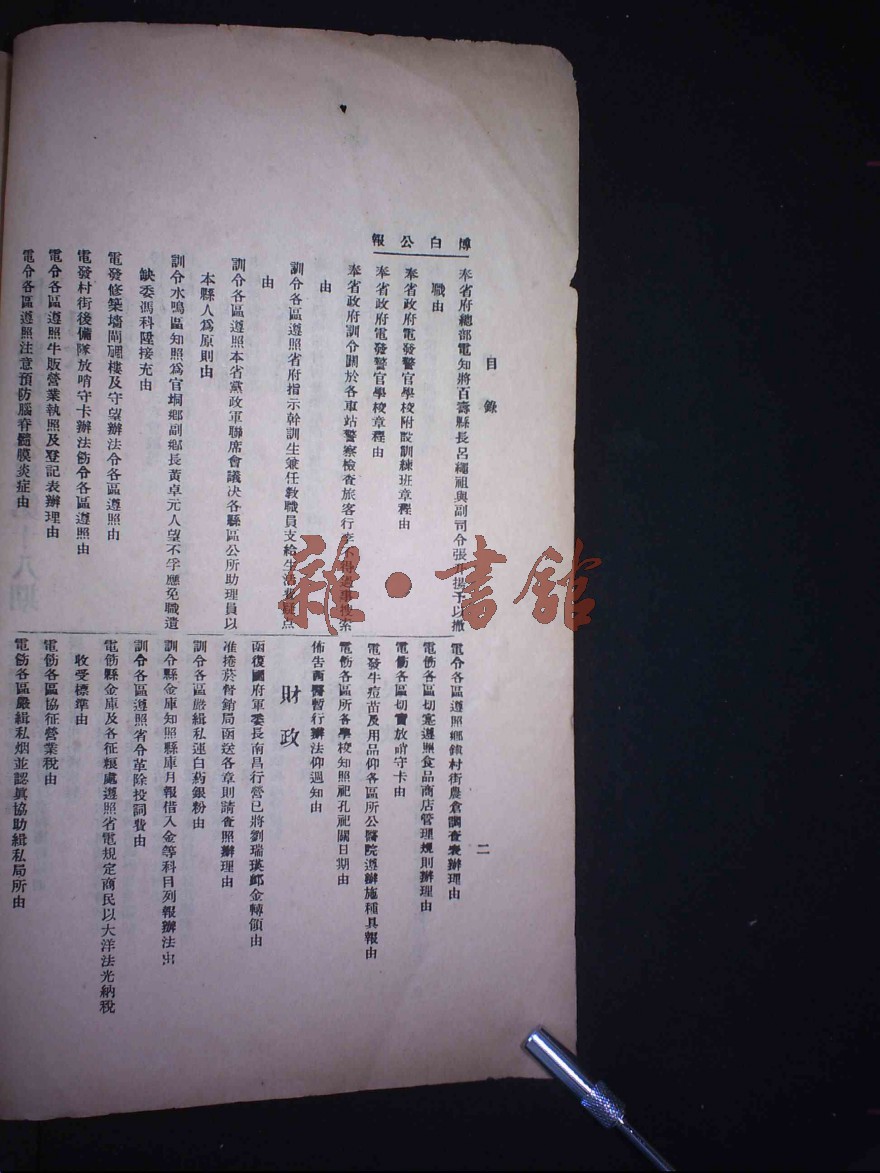 博白公報
目錄
二
奉省府總部電知將百壽縣長呂繩祖與副司令張
予以撤
職由
奉省政府電發警官學校附設訓練班章程由
奉省政府電發警官學校章程由
奉省政府訓令關於各車站警察檢查旅客行李
搜索
由
訓令各區遵照省府指示幹訓生兼任教職員支給生活費疑点
由
訓令各區遵照本省黨政軍聯席會議決各縣區公所助理員以
本縣人為原則由
訓令水鳴區知照為官垌鄉副鄉長黃卓元人望不孚應免職遺
缺委馮科陞接充由
電發修築墻閘碉樓及守望辦法令各區遵照由
電發村街後備隊放哨守卡辦法飭令各區遵照由
電令各區遵照牛販營業執照及登記表辦理由
電令各區遵照注意預防腦脊髓膜炎症由
電令各區遵照鄉鎮村街農倉調查表辦理由
電飭各區切實遵照食品商店管理規則辦理由
電飭各區切實放哨守卡由
電發牛疫苗及用品仰各區所公醫院遵辦施種具報由
電飭各區所各學校知照祀孔祀關日期由
佈告西醫暫行辦法仰週知由
財政
函復國府軍委長南昌行營已將劉瑞瑛卹金轉領由
准捲菸督銷局函送各章則請查照辦理由
訓令各區嚴緝私運白葯銀粉由
訓令縣金庫知照縣庫月報借入金等科目列報辦法由
訓令各區遵照省令革除投詞費由
電飭縣金庫及各征糧處遵照省電規定商民以大洋法光納稅
收受標準由
電飭各區協征營業稅由
電飭各區嚴緝私烟並認眞協助緝私局所由
雜·書館